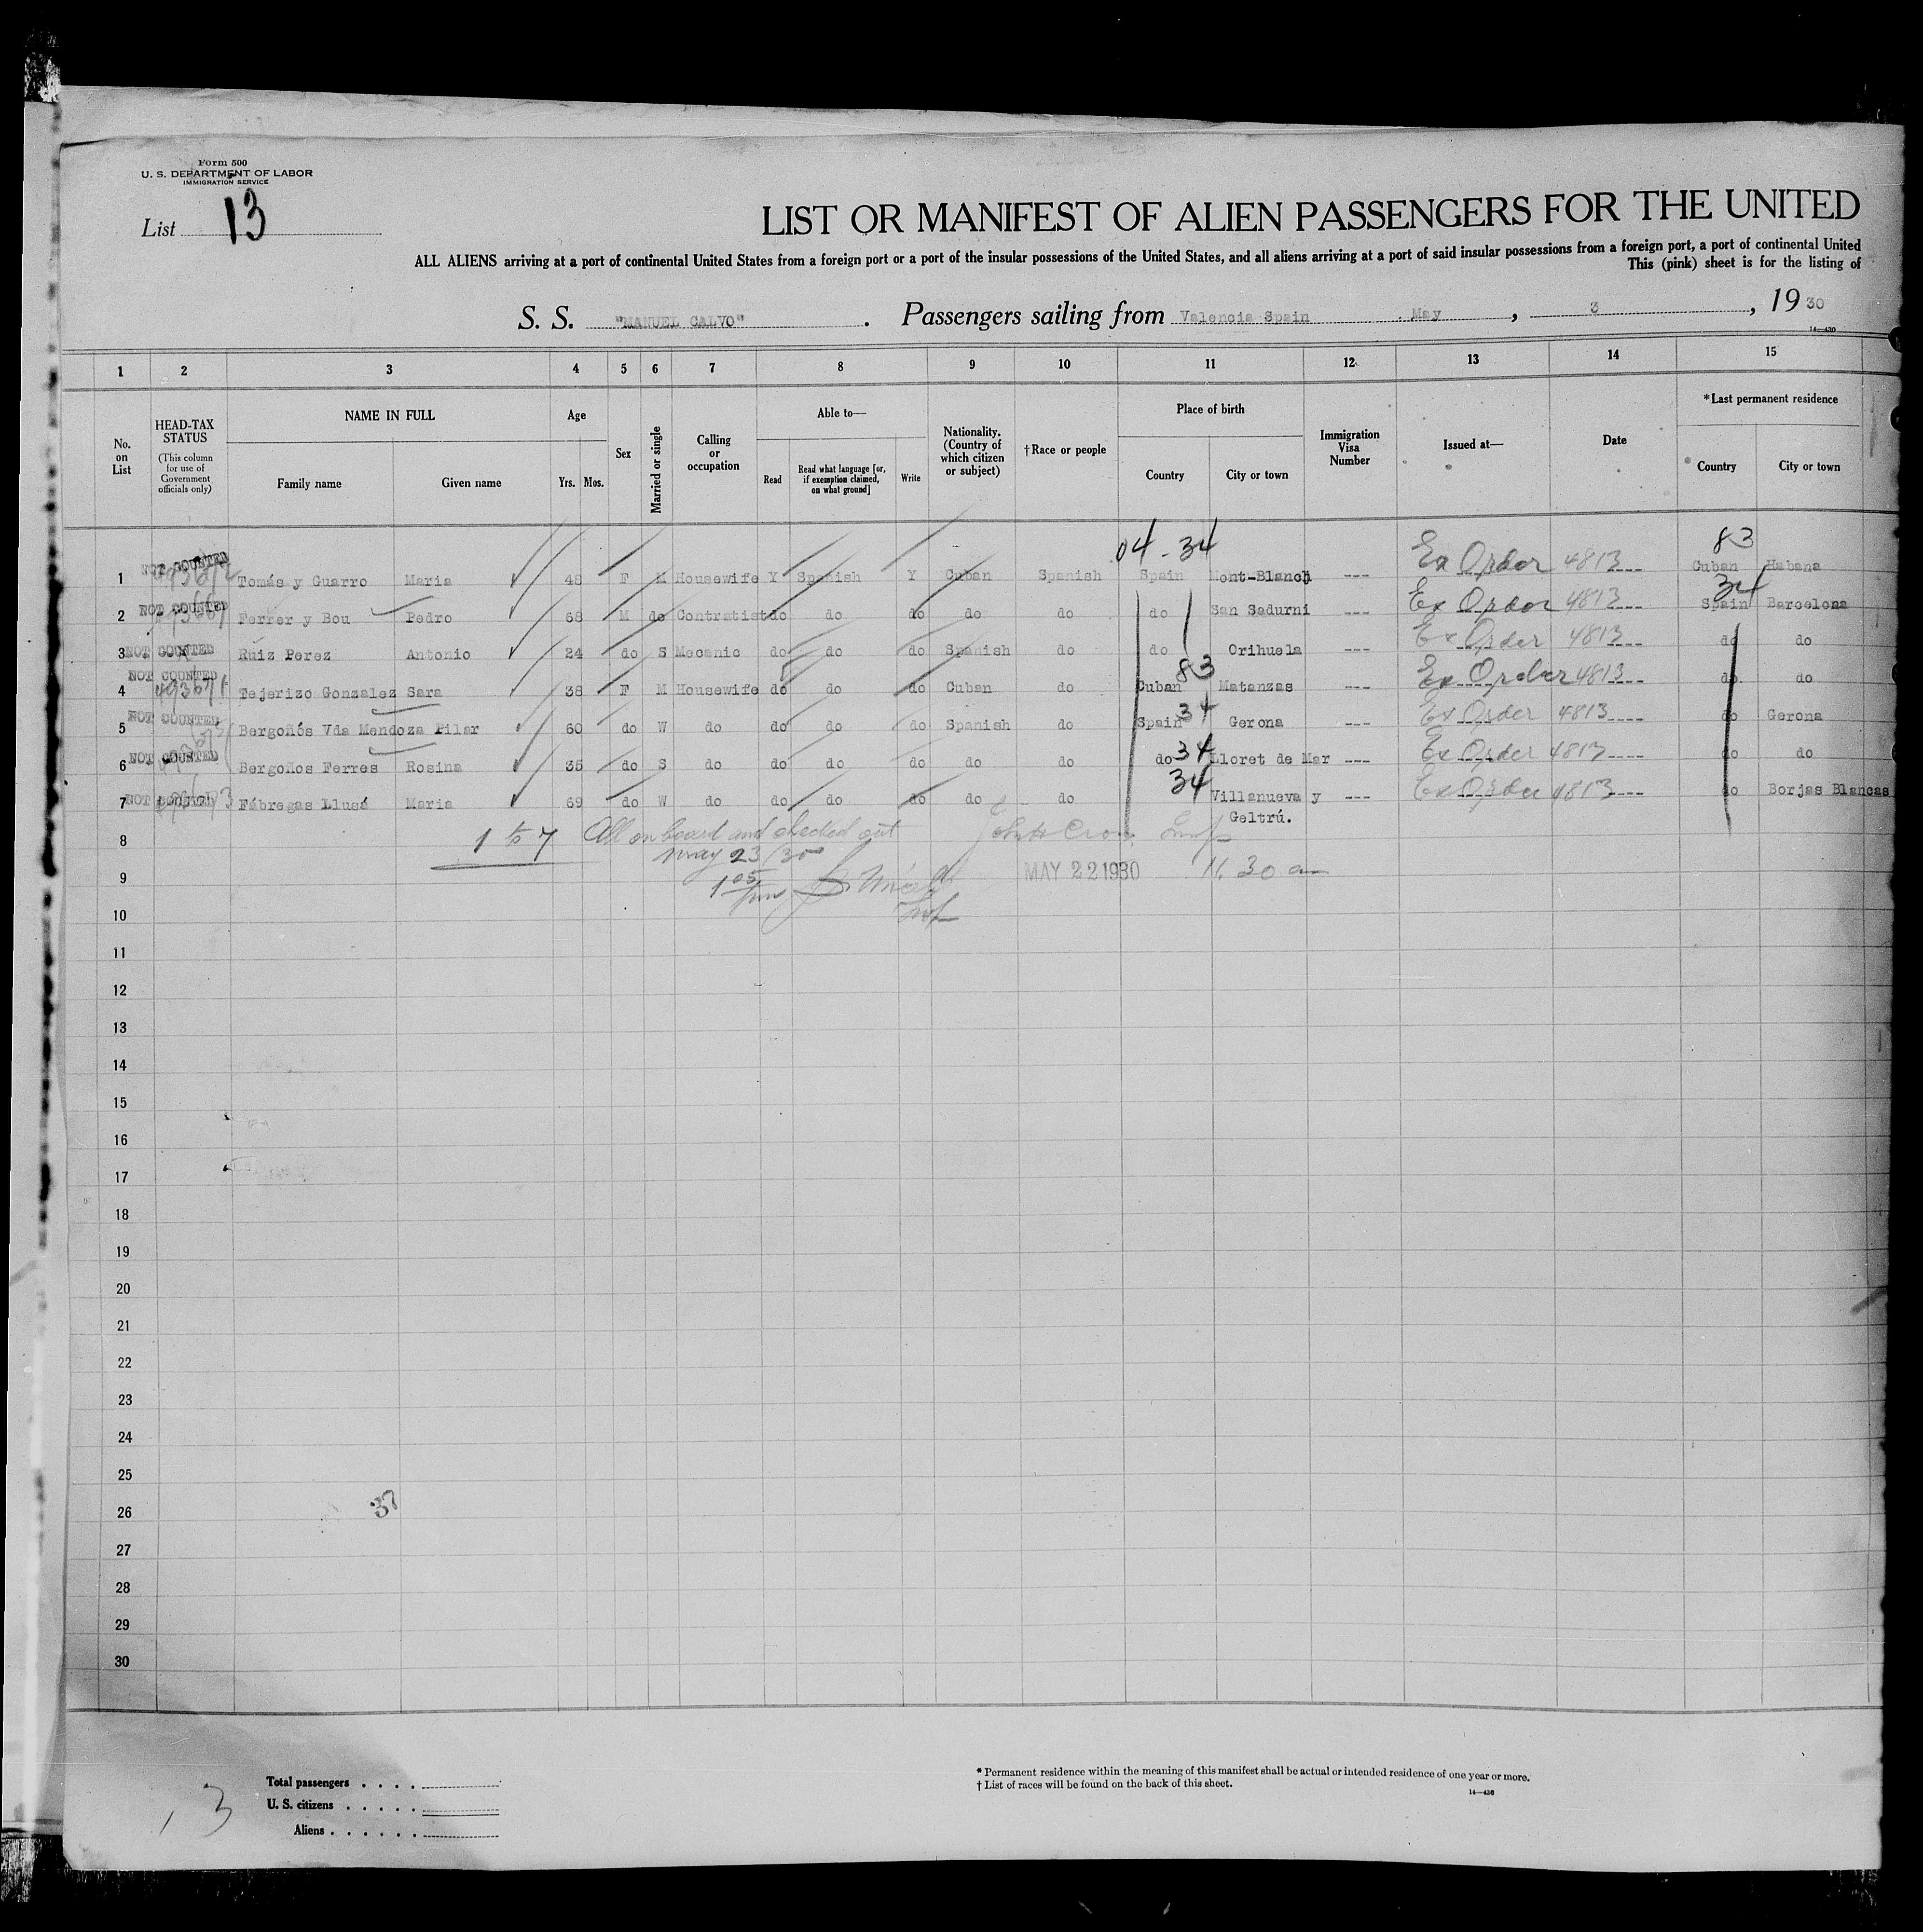 Form 500
U. S. DEPARTMENT OF LABOR
IMMIGRATION SERVICE
List 13
LIST OR MANIFEST OF ALIEN PASSENGERS FOR THE UNITED
ALL ALIENS arriving at a port of continental United States from a foreign port or a port of the insular possessions of the United States, and all aliens arriving at a port of said insular possessions from a foreign port, a port of continental United
This (pink) sheet is for the listing of
S. S. "MANUEL CALVO" . Passengers sailing from Valencia Spain May , 3 , 19 30
14—430
1 2 3 4 5 6 7 8 9 10 11 12 13 14 15
No. on List
HEAD-TAX STATUS (This column for use of Government officials only)
NAME IN FULL
Family name Given name
Age
Yrs. Mos.
Sex
Married or single
Calling or occupation
Able to—
Read
Read what language [or, if exemption claimed, on what ground]
Write
Nationality. (Country of which citizen or subject)
†Race or people
Place of birth
Country City or town
Immigration Visa Number
Issued at—
Date
*Last permanent residence
Country City or town
04 - 34 83
1 NOT COUNTED Tomás y Guarro Maria 48 F M Housewife Y Spanish Y Cuban Spanish Spain Mont-Blanch --- Ex Order 4813 Cuban Habana
34
2 NOT COUNTED Ferrer y Bou Pedro 68 M do Contratist do do do do do do San Sadurni --- Ex Order 4813 Spain Barcelona
3 NOT COUNTED Ruiz Perez Antonio 24 do S Mecanic do do do Spanish do do Orihuela --- Ex Order 4813 do do
83
4 NOT COUNTED Tejerizo Gonzalez Sara 38 F M Housewife do do do Cuban do Cuban Matanzas --- Ex Order 4813 do do
5 NOT COUNTED Bergoñós Vda Mendoza Pilar 60 do W do do do do Spanish do Spain 34 Gerona --- Ex Order 4813 do Gerona
6 NOT COUNTED Bergoños Ferres Rosina 35 do S do do do do do do do 34 Lloret de Mar --- Ex Order 4813 do do
34
7 NOT COUNTED Fábregas Llusá Maria 69 do W do do do do do do Villanueva y --- Ex Order 4813 do Borjas Blancas
Geltrú.
8 1 to 7 All on board and checked out John H
May 23/30
9 1 05 pm MAY 22 1930 11.30 am
10
11
12
13
14
15
16
17
18
19
20
21
22
23
24
25
26
37
27
28
29
30
Total passengers . . . .
U. S. citizens . . . . .
Aliens . . . . . .
13
* Permanent residence within the meaning of this manifest shall be actual or intended residence of one year or more.
† List of races will be found on the back of this sheet.
14—430